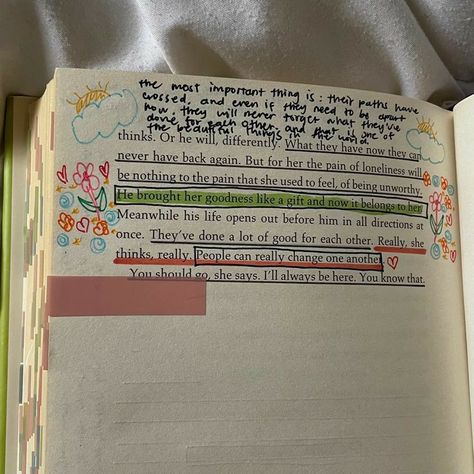 the most important thing is : their paths have
crossed, and even if they need to be apart
now, they will never forget what they've
done for each other, and that is one of
the beautiful things in the world.
thinks. Or he will, differently. What they have now they can
never have back again. But for her the pain of loneliness will
be nothing to the pain that she used to feel, of being unworthy.
He brought her goodness like a gift and now it belongs to her.
Meanwhile his life opens out before him in all directions at
once. They've done a lot of good for each other. Really, she
thinks, really. People can really change one another.
You should go, she says. I'll always be here. You know that.